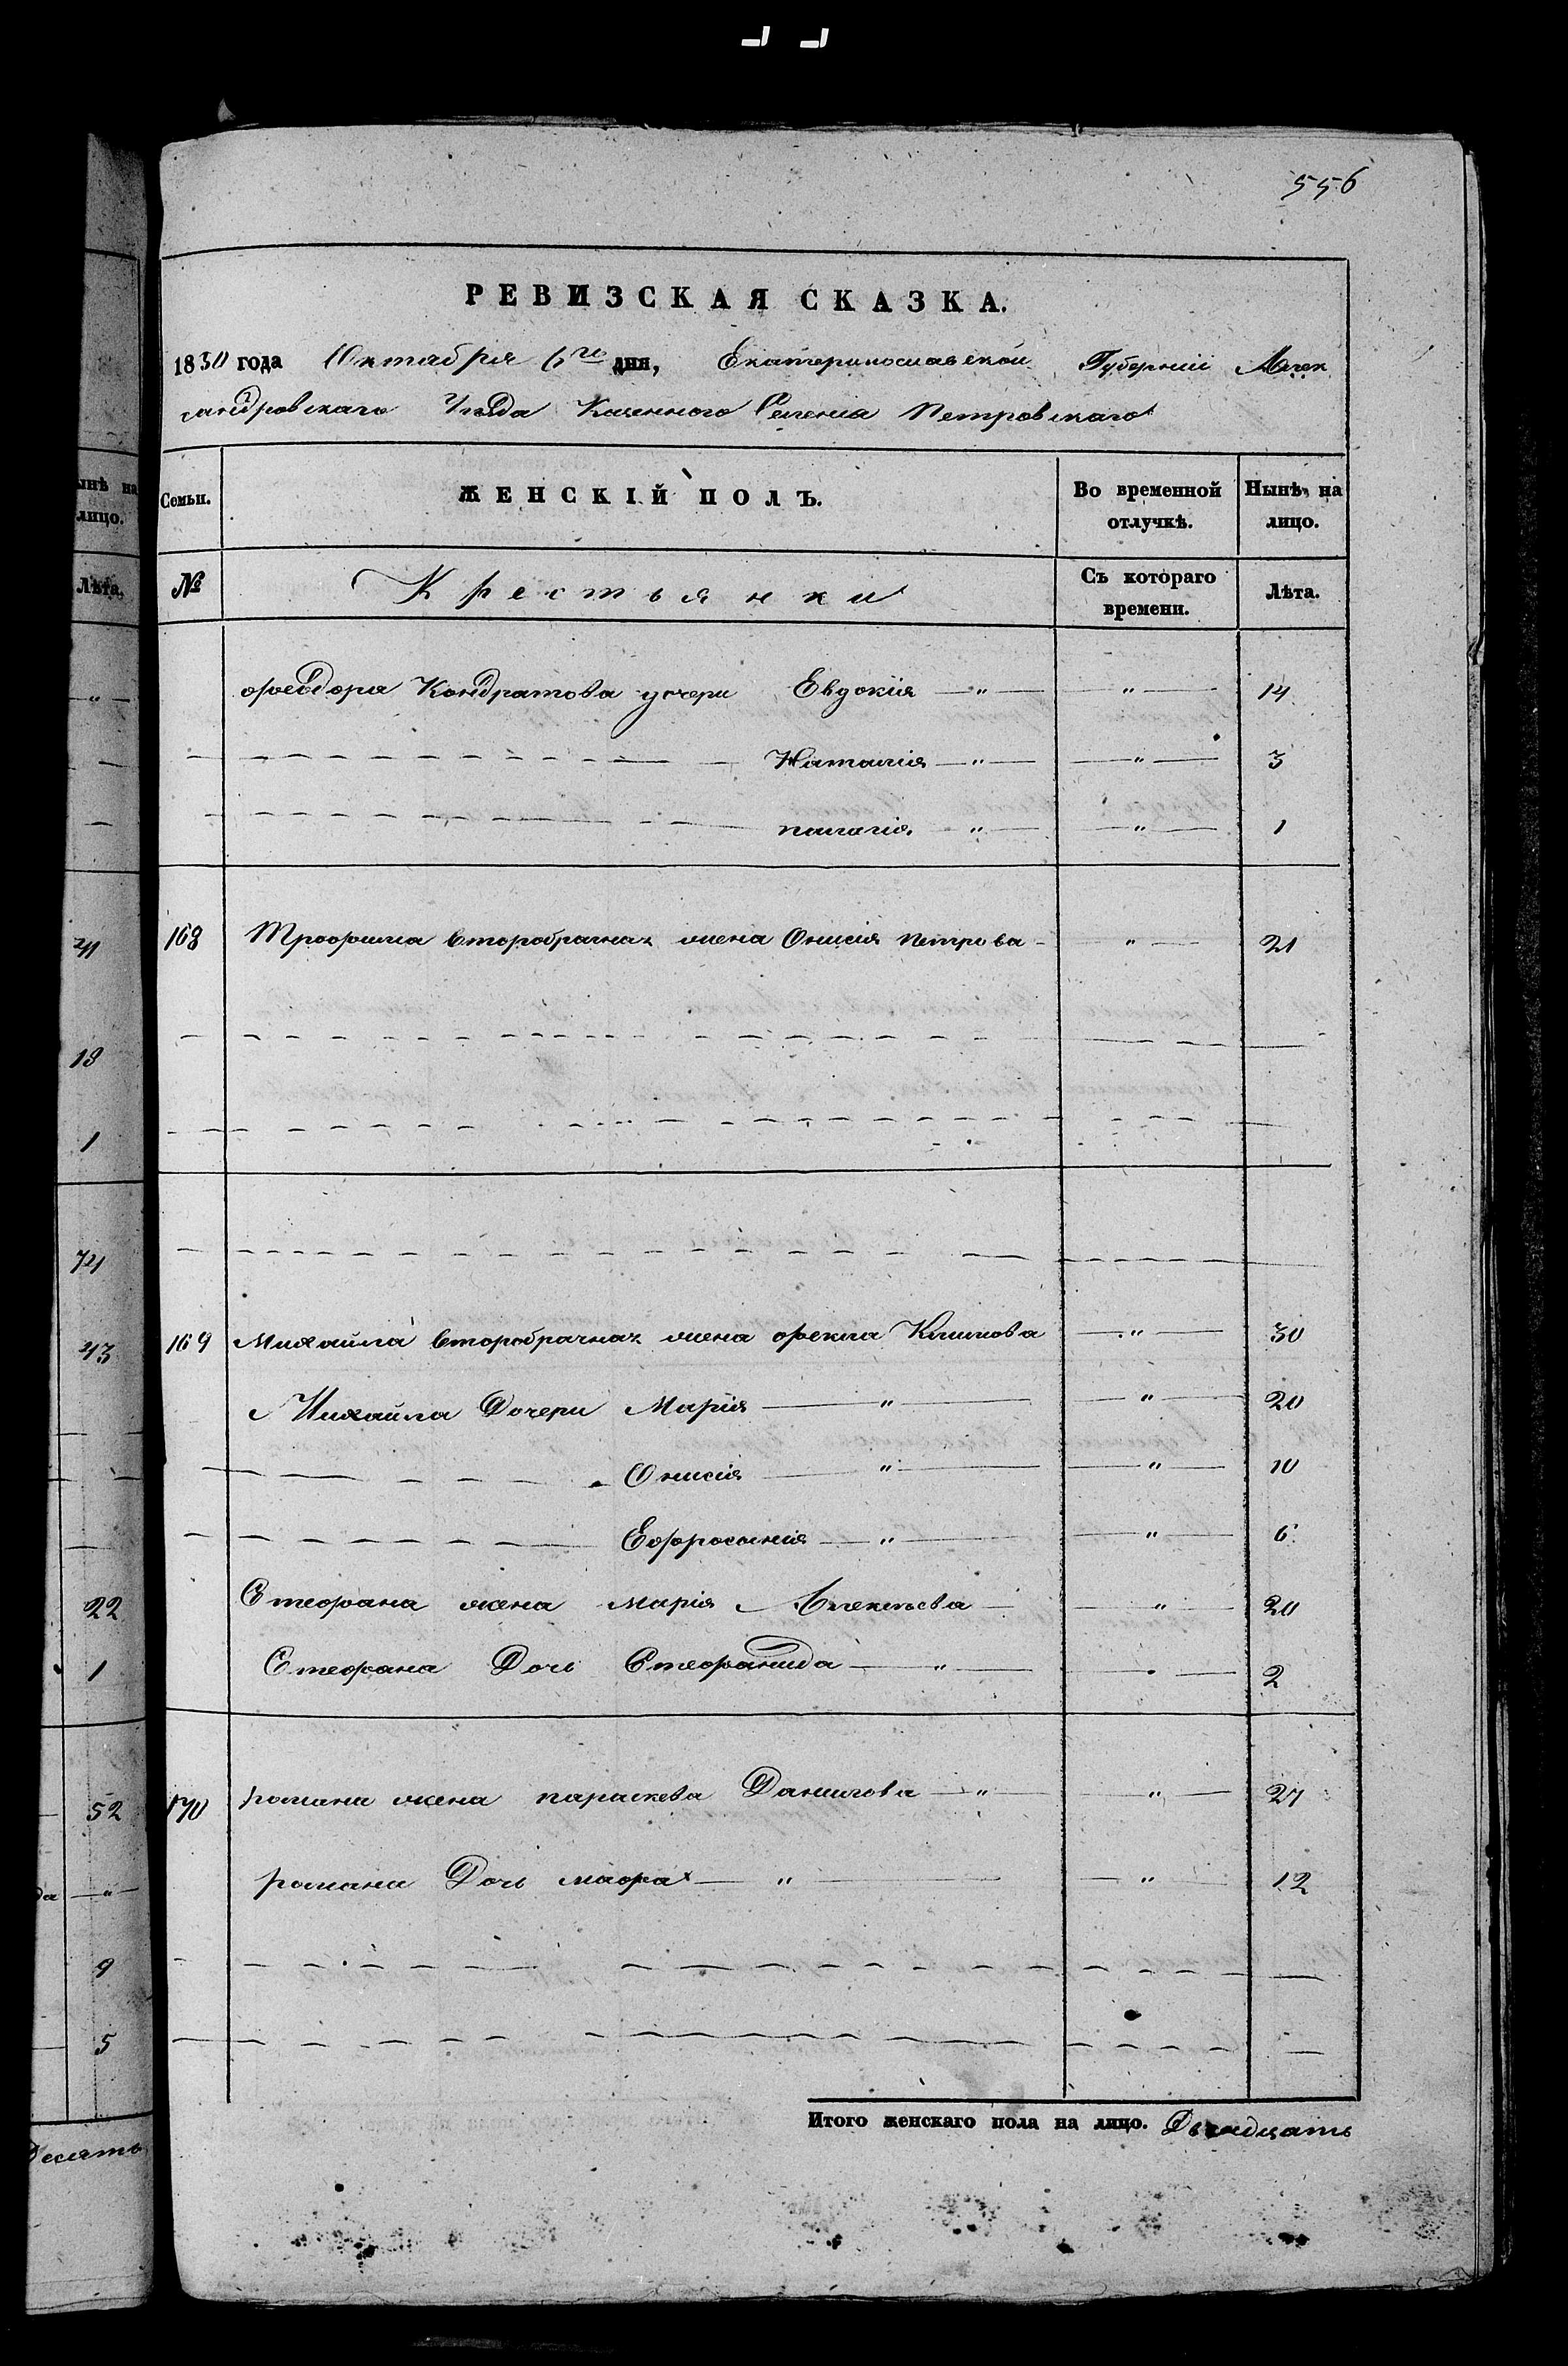 556
РЕВИЗСКАЯ СКАЗКА.
1850 года Октября 6го дня, Екатеринославской Губерніи Алек
сандровскаго Уезда Казенного Селенія Петровскаго
Нынѣ на лицо.
Лѣта.
Семьи. ЖЕНСКІЙ ПОЛЪ. Во временной отлучкѣ. Нынѣ на лицо.
№ Крестьянки Съ котораго времени. Лѣта.
Феодора Кондратова дочери Евдокія — " — — " — 14
Наталія — " — — " — 3
палагія — " — — " — 1
168 Трофима второбрачная жена Онисія петрова — " — 21
169 Михайла второбрачная жена фекла Климова — " — 30
Михайла Дочери Марія — " — — " — 20
Онисія — " — — " — 10
Ефросинія — " — — " — 6
Стефана жена Марія Алексѣева — " — 20
Стефана Дочь Стефанида — " — — " — 2
170 романа жена параскева Данилова — " — — " — 27
романа Дочь мафра — " — — " — 12
Итого женскаго пола на лицо. Двенадцать
41
18
1
74
43
22
1
52
да — " —
9
5
Десять